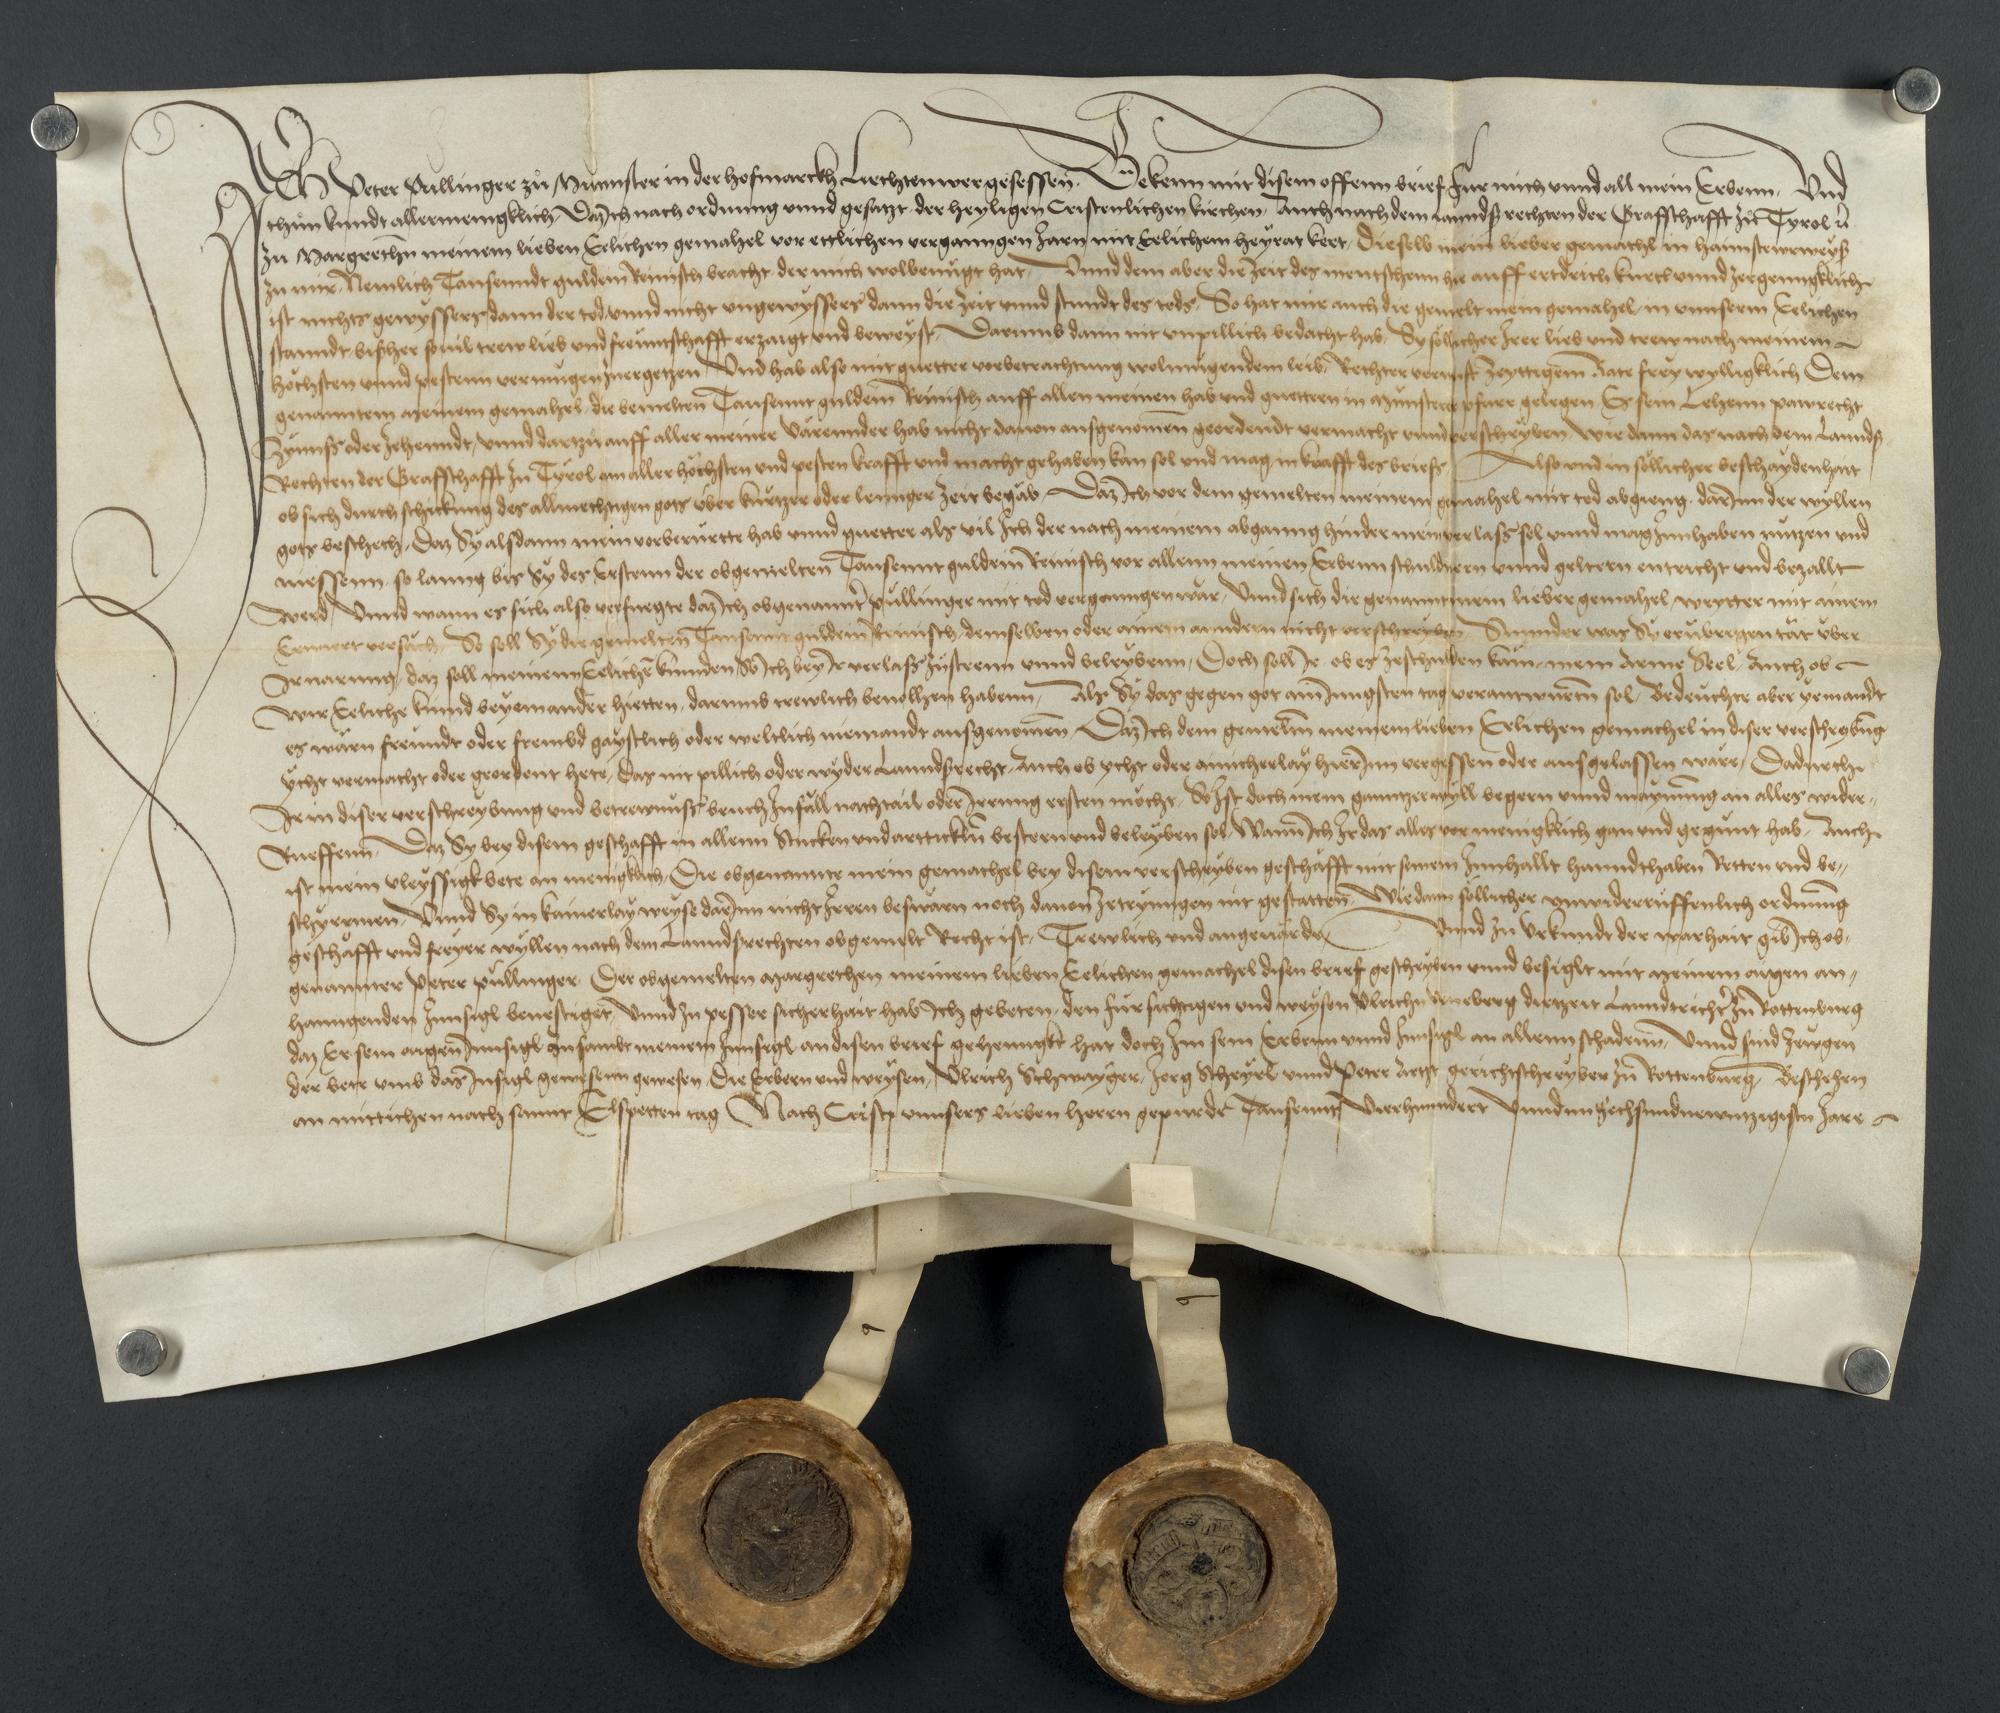 Ich Peter Püllinger zů Münnster in der hofmarckh Liechtenwer gesessen. Bekenn mit disem offenn brief für mich vnnd all mein Erbenn. Vnd
thůn kundt allermenigklich Daz ich nach ordnung vnnd gesatzt der heyligen Cristenlichen kirchen. Auch nach dem lanndßrechten der Graffschafft zů Tyrol
zu Margrethn meinem lieben Eelichen gemahel vor ettlichen vergangen Jarn mit Eelichem heyrat kert. Dieselb mein lieber gemachl in haimstewrweyß
zu mir Nemlich Tausenndt guldein Reinisch bracht. der mich wolbenügt hat. Vnnd dem aber die zeit des menntschenn hie auff ertdrich kurtz vnnd zergenngklich
ist nichts gewyssers dann der tod vnnd nicht vngewyssers dann die zeit vnnd stundt des tods. So hat mir auch die gemelt mein gemahel in vnnserm Eelichen
stanndt bisher souil trew lieb vnd freuntschafft erzaigt vnd beweyst. Darumb dann nit vnpillich bedacht hab. Sy söllicher Irer lieb vnd trew nach meinem
höchsten vnnd pestenn vermugen zuergetzen Vnd hab also mit guetter vorbetrachtung wolmugendem leib. Rechter vernufft zeyttigem Rate frey wylligklich Dem
genanntem meinem gemahel die bemelten Tausennt guldein Reinisch auff allen meinen hab vnd guettern in Münnster pfarr gelegen Es sein Lehenn pawrecht
Zynnß oder zehenndt. vnnd dartzu auff aller meiner varennder hab nicht dauon ausgenomen geordendt vermacht vnnd verschryben. wie dann das nach dem Lannds
Rechten der Graffschafft zu Tyrol am aller höchsten vnd pesten krafft vnd macht gehaben kan sol vnd mag in krafft des briefs. Also vnd in söllicher beschaydenhait
ob sich durch schickung des allmechtigen gots vber kurtzer oder lennger zeit begäb. Daz ich vor dem gemelten meinem gemahel mit tod abgieng. darInn der wyllen
gots beschech. Daz Sy alsdann mein vorberuertte hab vnnd guetter als vil Ich der nach meinem abganng hinder mein verlaß sol vnnd mag Innhaben nutzen vnd
niessenn. so lanng bis Sy des Erstenn der obgemelten Tausennt guldein Reinisch vor allenn meinen Erbenn schuldnern vnnd geltern entricht vnd bezallt
werd. Vnnd wann es sich also verfuegte daz ich obgenannter püllinger mit tod vergangen wär. Vnnd sich die genannt mein lieber gemahel weytter mit ainem
Eewiert versäch. So soll Sy die gemelten Tausennt guldein Reinisch demselben oder ainem anndern nicht verschreyben Sunnder was Sy erübergen tät über
Ir narung. daz soll meinem Eelichen kinnden So Ich bey Ir verlaß züsteenn vnnd beleybenn. Doch soll Ir ob es zeschulden käm mein arme Seel. Auch ob
wir Eeliche kinnd beyeinander hietten. darumb trewlich beuolhen habenn. Als Sy das gegen got am Jungsten tag verantwurtn sol. Bedeuchte aber yemandt
es wärn freundt oder frembd gaystlich oder weltlich niemandt ausgenomen. Daz Ich dem gemeltn meinem lieben Eelichen gemachel in diser verschreybung
ycht vermacht oder geordent hete. das nit pillich oder wyder Lanndsrecht. Auch ob ycht oder ainicherlay hierInn vergessen oder ausgelassen wäre. Dadurch
Ir in diser verschreybung vnd betrewnuß bruch Infäll nachtail oder Irrung ersten möcht. So Ist doch mein ganntzer wyll begern vnnd maynung an alles wider
Rueffenn. Daz Sy bey disem geschafft in allenn stucken vnd artticklen besteen vnd beleyben sol. Wann Ich Ir das alles vor menigklich gan vnd gegunt hab. Auch
ist mein vleyssigk bete an menigklich. Die obgenannte mein gemachel bey disem verschreyben geschäfft mit seinem Innhallt hanndthaben Retten vnd be-
schyermen. Vnnd Sy in kainerlay weyse darInn nicht Irren beswärn noch dauon zetrynngen nit gestatten. Wie dann söllicher vnwiderrüffenlich ordnung
geschäfft vnd freyer wyllen nach dem Lanndsrechten obgemelt Recht ist. Trewlich vnd angeuärde. Vnnd zu vrkundt der warhait gib Ich ob-
genannter Peter püllinger. Der obgemelten Margrethen meinem lieben Eelichen gemachel disen brief geschryben vnnd besiglt mit meinem aigen an-
hanngenden Innsigl beuestiget. Vnnd zu pesser sicherhait hab Ich gebeten. den fürsichtigen vnd weysen Vlrichn dietzeit Lanndtrichter zu Rottenburg
daz Er sein aigen Innsigl zusambt meinem Innsigl an disen brief gehenngkt hat doch Im sein Erbenn vnnd Innsigl an allenn schadenn. Vnnd sind zewgen
der bete vmb das Insigl gewesenn gewesen. Die Erbern vnd weysen. Vlrich Schwayger. Jorg Scheyel vnnd Peter Artzt gerichtschreyber zu Rottenburg. Beschehen
an mittichen nach sannt Elspetten tag Nach Cristj vnnsers lieben herrn gepurde Tausennt Vierhunndert Vnnd im sechsundnewntzigisten Jare